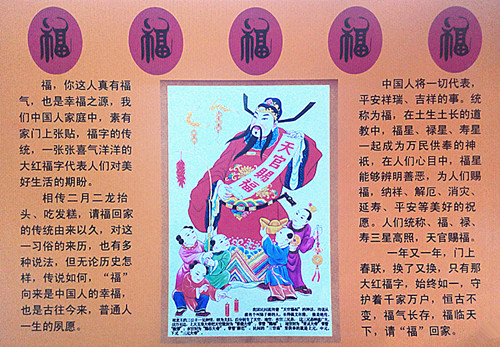 福 福 福 福 福
福，你这人真有福
气，也是幸福之源，我
们中国人家庭中，素有
家门上张贴，福字的传
统，一张张喜气洋洋的
大红福字代表人们对美
好生活的期盼。
相传二月二龙抬
头、吃发糕，请福回家
的传统由来以久，对这
一习俗的来历，也有多
种说法，但无论历史怎
样，传说如何，“福”
向来是中国人的幸福，
也是古往今来，普通人
一生的夙愿。
天官賜福
中国人将一切代表，
平安祥瑞、吉祥的事。统
称为福，在土生土长的道
教中，福星、禄星、寿星
一起成为万民供奉的神
祇，在人们心目中，福星
能够辨明善恶，为人们赐
福，纳祥、解厄、消灾、
延寿、平安等美好的祝
愿。人们统称、福、禄、
寿三星高照，天官赐福。
一年又一年，门上
春联，换了又换，只有那
大红福字，始终如一，守
护着千家万户，恒古不
变，福气长存，福临天
下，请“福”回家。